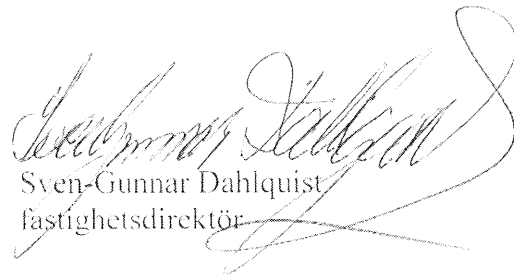 Sven-Gunnar Dahlquist
fastighetsdirektör